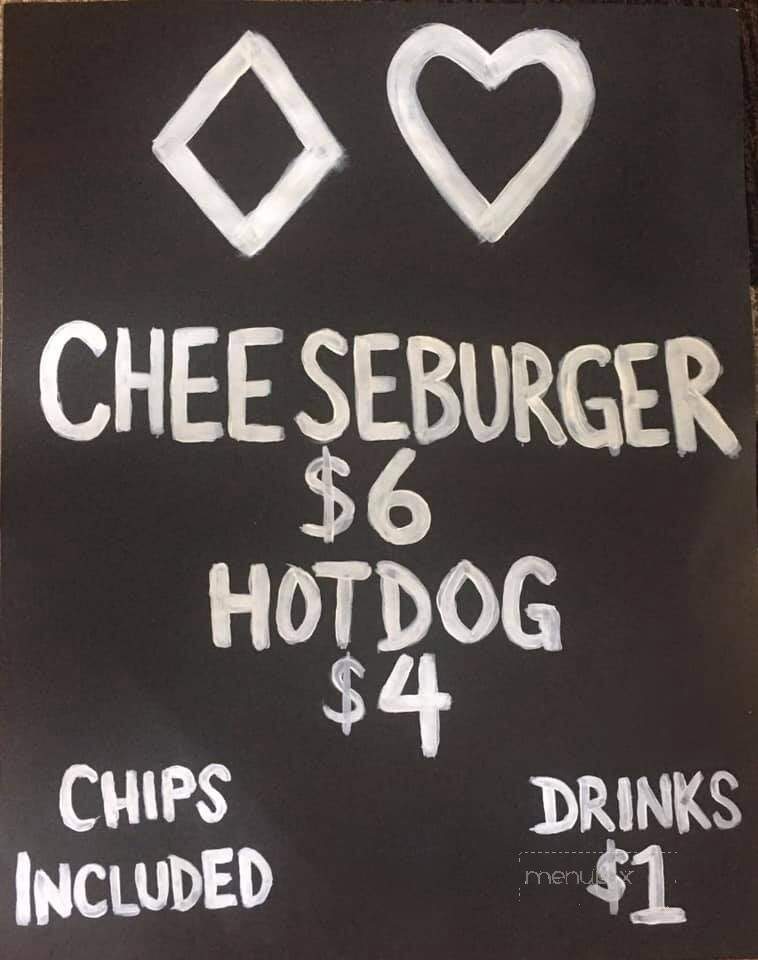 CHEESEBURGER
$6
HOTDOG
$4
CHIPS
INCLUDED
DRINKS
$1